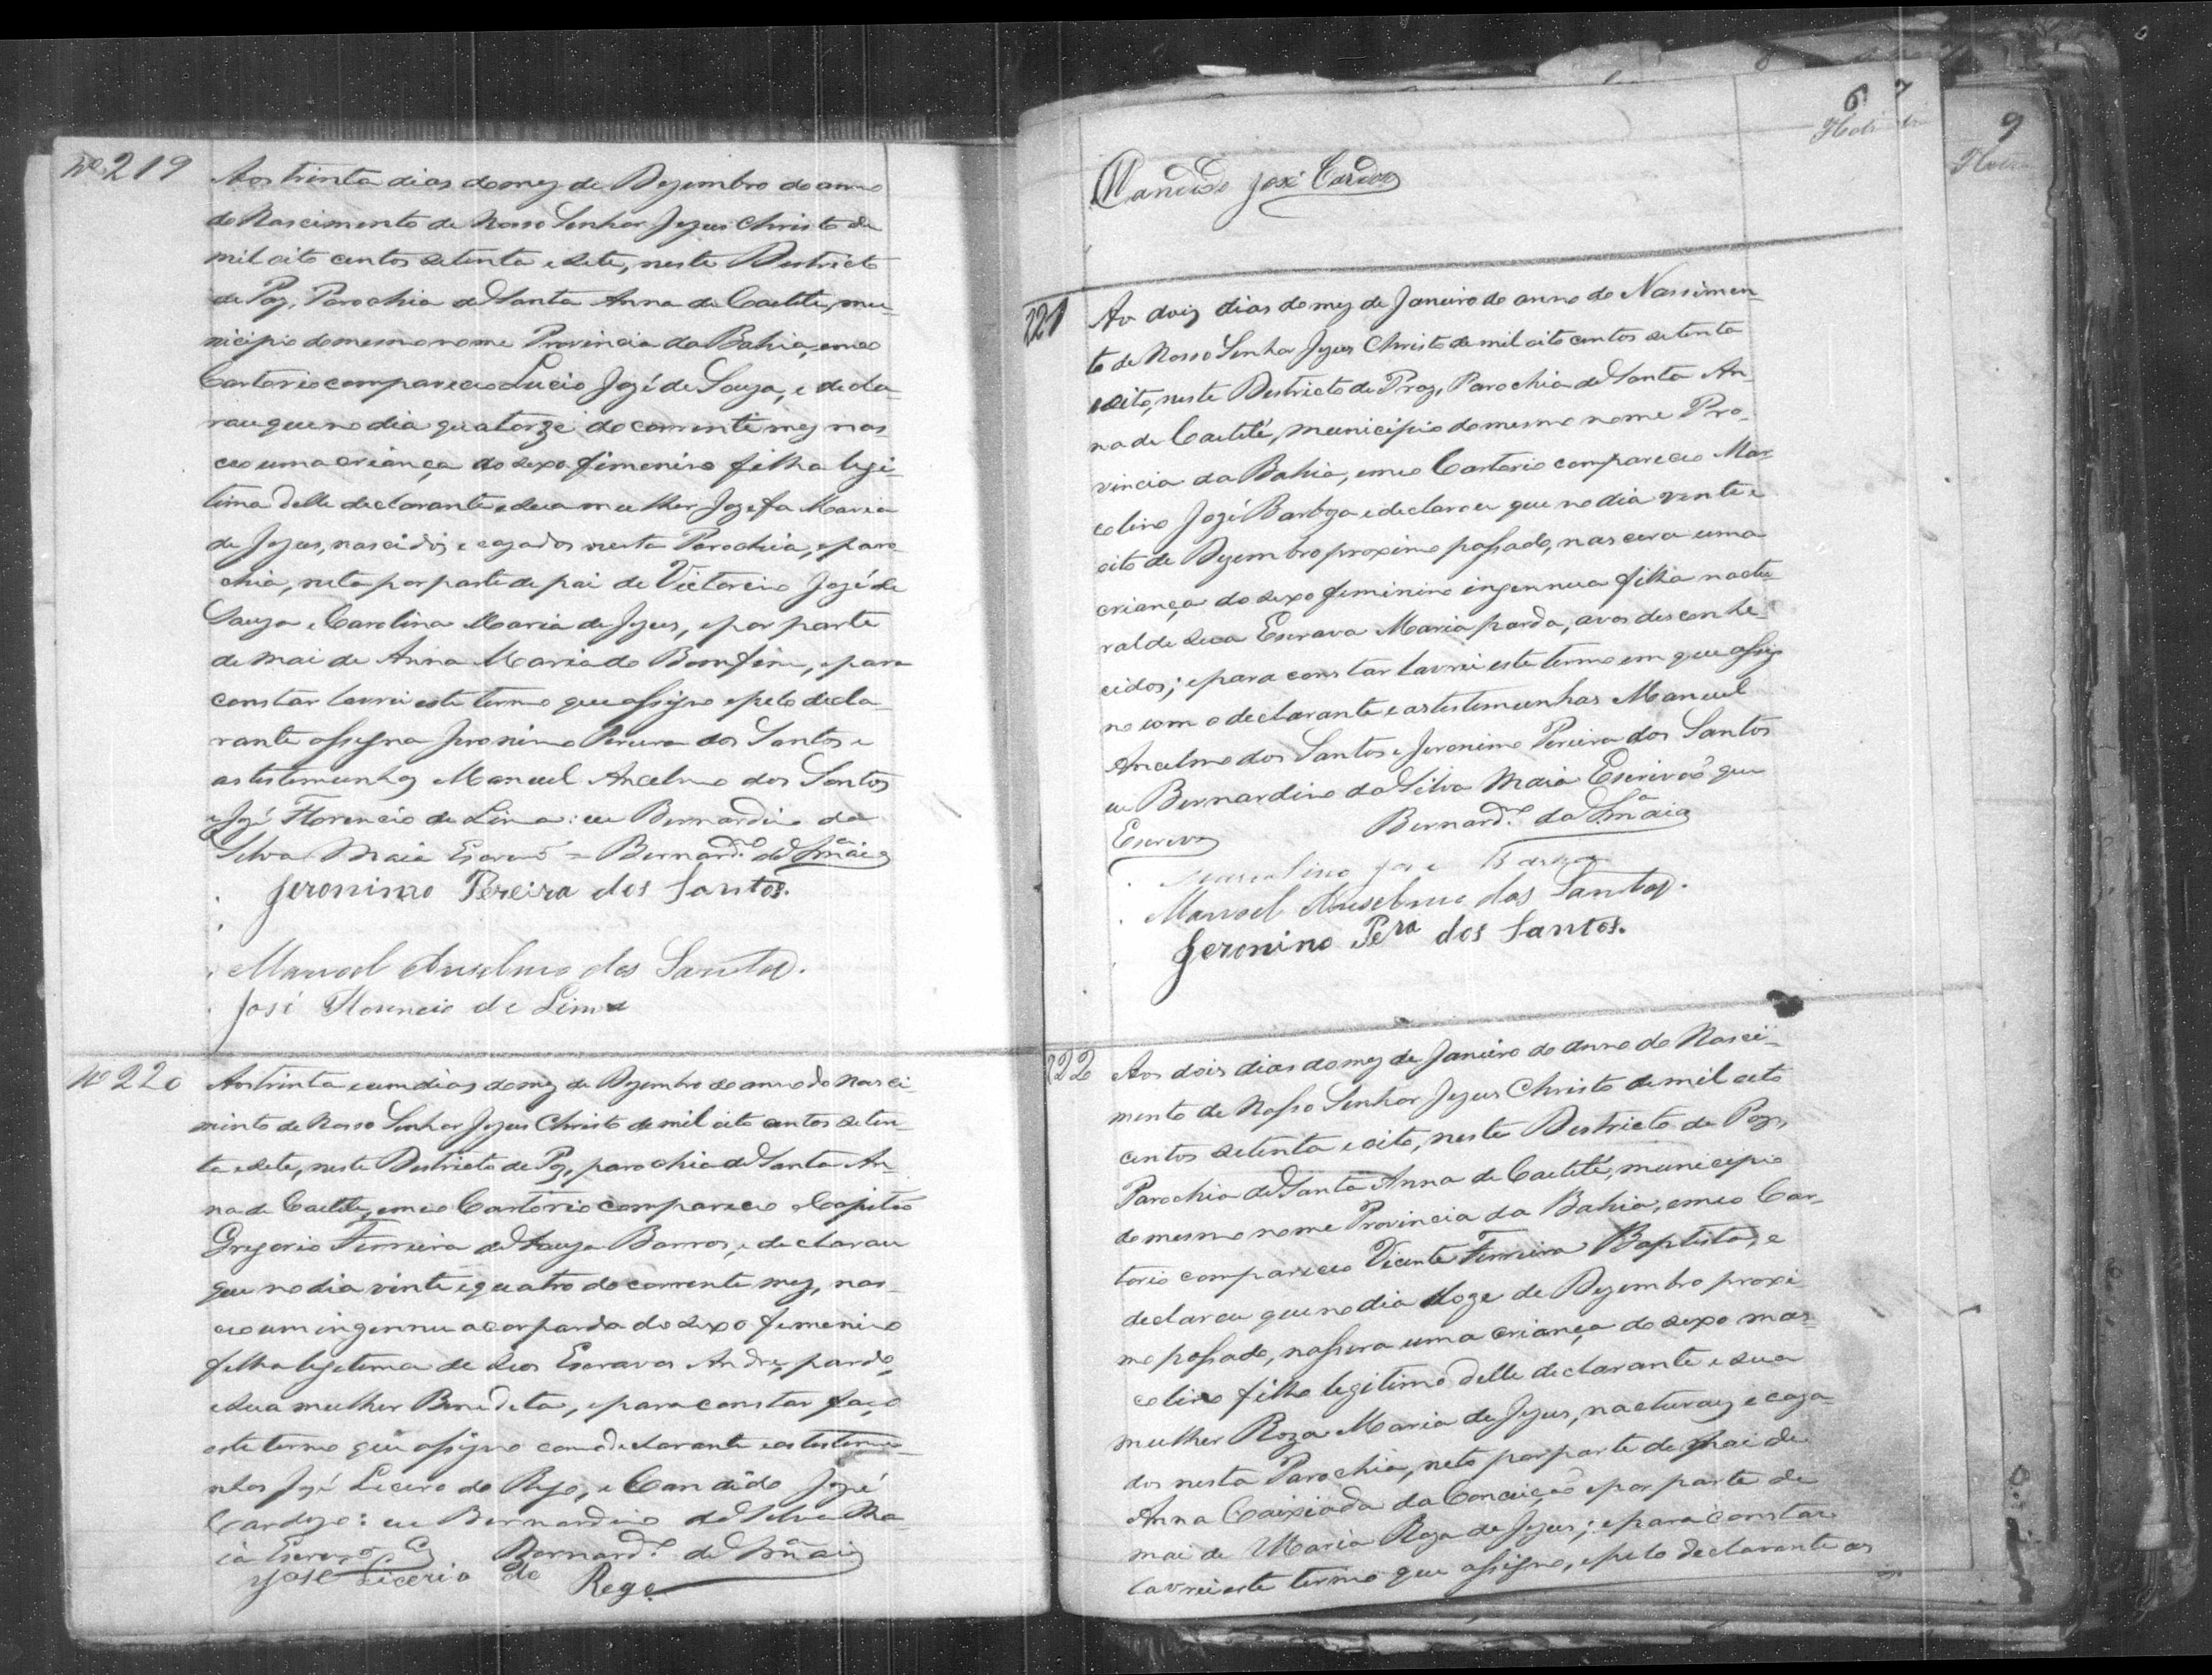 Nº 219
Aos trinta dias do mez de Dezembro do anno
do Nascimento de Nosso Senhor Jezus Christo de
mil oito centos setenta e sete, neste Districto
de Paz, Parochia de Santa Anna de Caetite, mu-
nicipio do mesmo nome Provincia da Bahia, em meo
Cartorio compareceo Lucio Jozé de Souza, e decla-
rou que no dia quatorze do corrente mez nas-
ceo uma criança do sexo femenino filha legi-
tima delle declarante e sua mulher Jozefa Maria
de Jezus, nascidos e cazados nesta Parochia, e paro-
chia, neta por parte de pai de Victorino Jozé de
Souza e Carolina Maria de Jezus, e por parte
de mai de Anna Maria do Bomfim, e para
constar lavrei este termo que assigno e pelo decla-
rante assigna Jeronimo Pereira dos Santos e
as testemunhas Manuel Ancelmo dos Santos
e Jozé Florencio de Lima: eu Bernardino da
Silva Maia Escrivão = Bernard.º da S.ª Maia
Jeronimo Pereira dos Santos.
Manoel Anselmo dos Santos.
José Florencio de Lima
Nº 220
Aos trinta e um dias do mez de Dezembro do anno do Nasci-
mento de Nosso Senhor Jezus Christo de mil oito centos seten-
ta e sete, neste Districto de Paz, parochia de Santa An-
na de Caetite, em meo Cartorio compareceo o Capitão
Gregorio Ferreira de Souza Barros, e declarou
que no dia vinte e quatro do corrente mez, nas-
ceo um ingennua cor parda do sexo femenino
filha legitima de seos Escravos Andre, pardo,
e sua mulher Benedeta, e para constar faço
este termo que assigno com o declarante e as testemu-
nhas Jozé Licerio do Rego, e Candido Jozé
Cardozo: eu Bernardino da Silva Ma-
ia Escrivão Bernard.º da S.ª Maia
José Licerio do Rego
6 7
9
Candido José Cardozo
221
Ao dois dias do mez de Janeiro do anno do Nassimen-
to de Nosso Senhor Jezus Christo de mil oito centos setenta
e oito, neste Destricto de Paz, Parochia de Santa An-
na de Caetité, municipio do mesmo nome Pro-
vincia da Bahia, em meo Cartorio compareceo Mar-
colino Jozé Barboza e declarou que no dia vinte e
oito de Dezembro proximo passado, nascera uma
criança do sexo feminino ingennua filha natu-
ral de sua Escrava Maria parda, avos desconhe-
cidos; e para constar lavrei este termo em que assig-
no com o declarante e as testemunhas Manuel
Ancelmo dos Santos e Jeronimo Pereira dos Santos
eu Bernardino da Silva Maia Escrivão que
Escrevy Bernard.º da S.ª Maia
Marcolino José Barboza
Manoel Anselmo dos Santos.
Jeronino Pe.ra dos Santos.
222
Aos dois dias do mez de Janeiro do anno do Nasci-
mento de Nosso Senhor Jezus Christo de mil oito
centos setenta e oito, neste Destricto de Paz,
Parochia de Santa Anna de Caetité, municipio
do mesmo nome Provincia da Bahia, em meo Car-
torio compareceo Vicente Ferreira Baptista, e
declarou que no dia doze de Dezembro proxi-
mo passado, nassera uma criança do sexo mas-
colino filho legitimo delle declarante e sua
mulher Roza Maria de Jezus, nacturaes e caza-
dos nesta Parochia, neto por parte de pai de
Anna Caixiada da Conceição e por parte de
mai de Maria Roza de Jezus; e para constar
lavrei este termo que assigno, e pelo declarante as